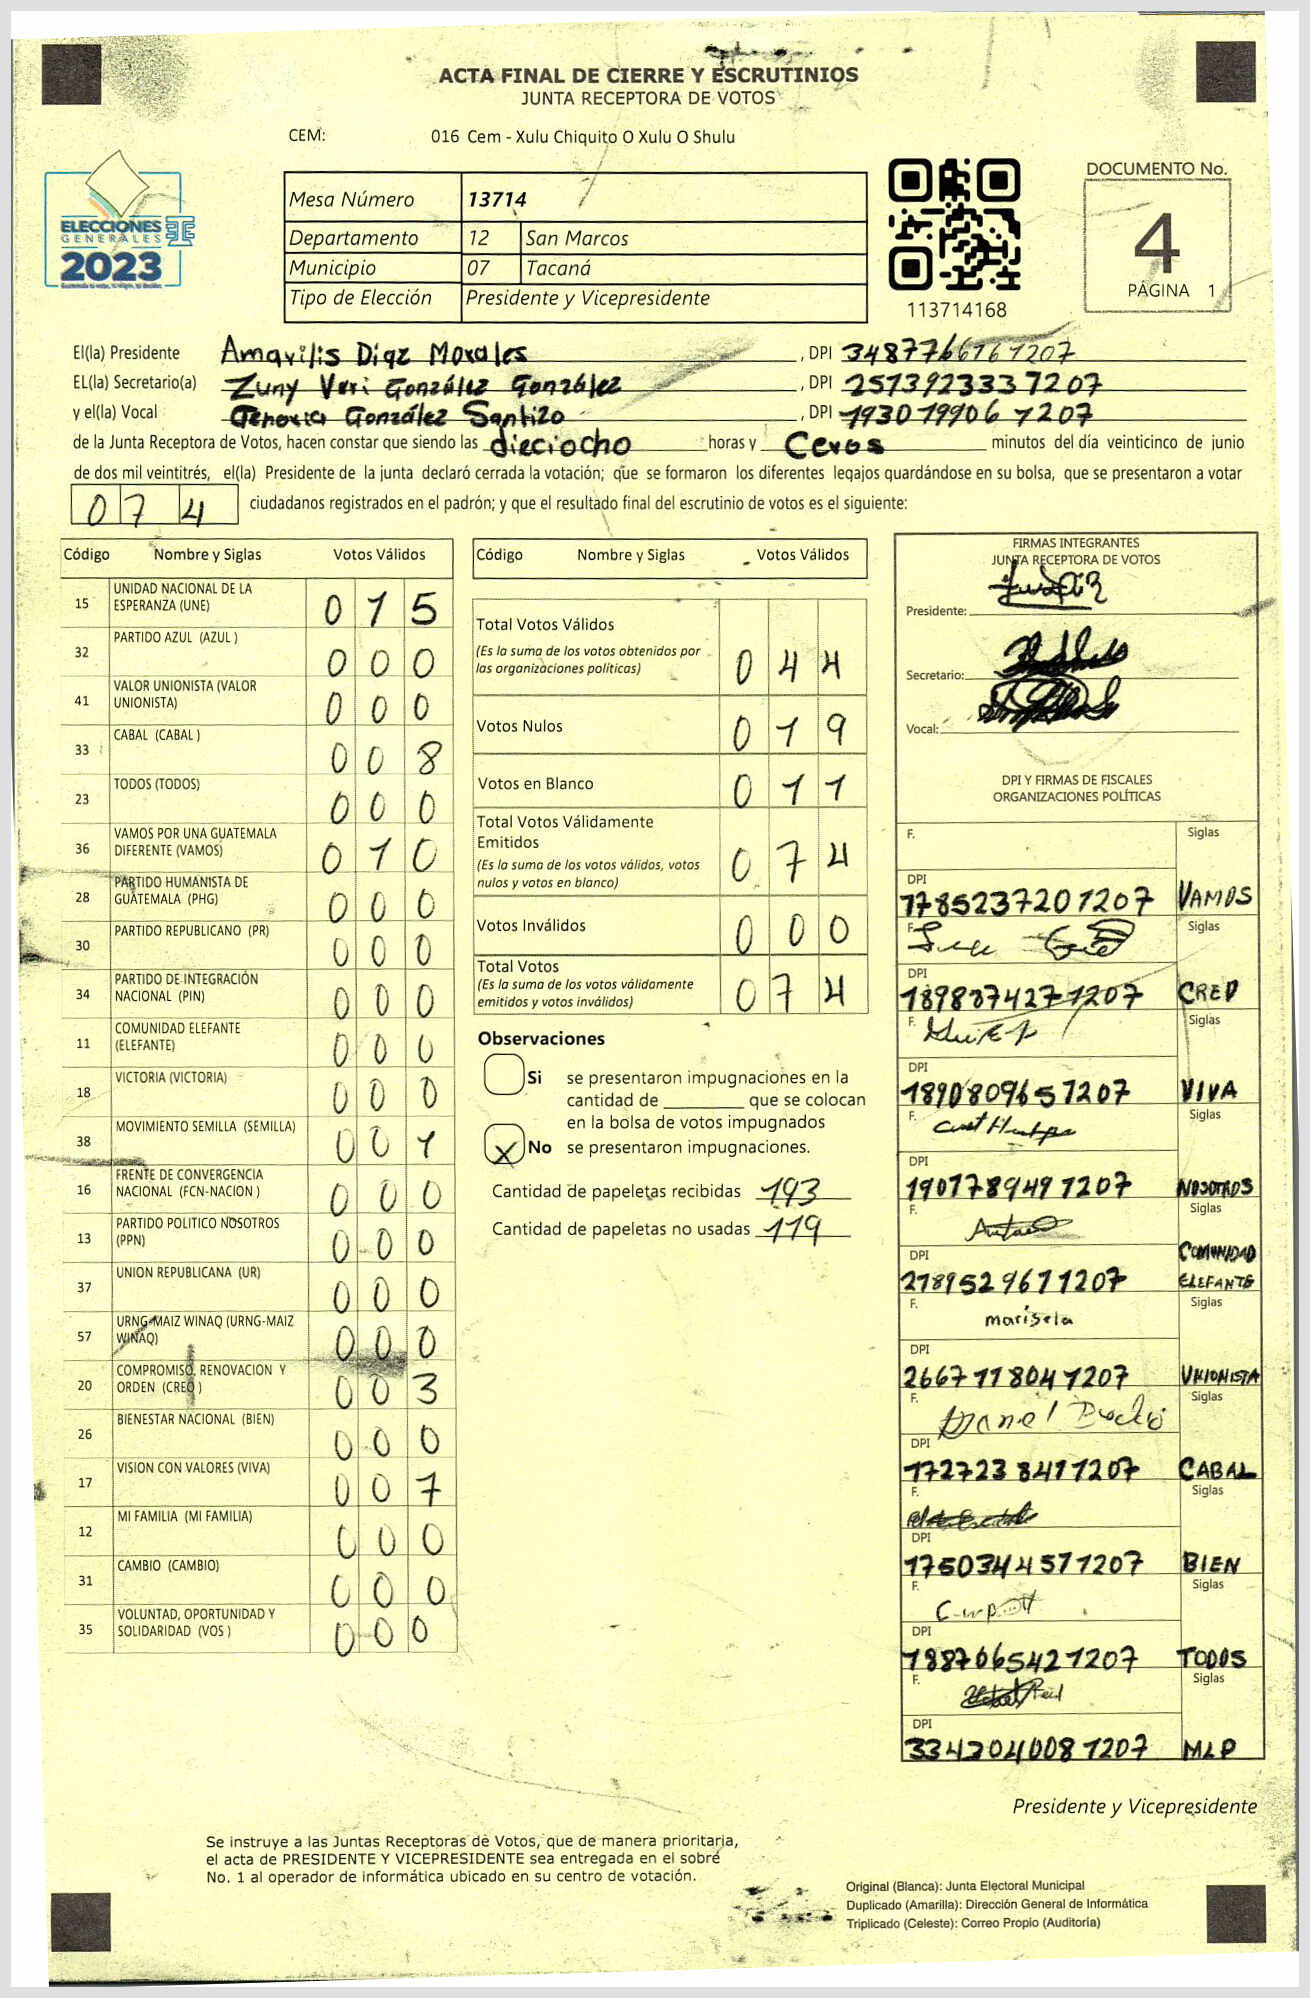 ACTA FINAL DE CIERRE Y ESCRUTINIOS
JUNTA RECEPTORA DE VOTOS
CEM: 016 Cem - Xulu Chiquito O Xulu O Shulu
ELECCIONES
GENERALES
2023
Mesa Número 13714
Departamento 12 San Marcos
Municipio 07 Tacaná
Tipo de Elección Presidente y Vicepresidente
113714168
DOCUMENTO No.
4
PÁGINA 1
El(la) Presidente Amavilis Diaz Morales, DPI 3487766161207
EL(la) Secretario(a) Zuny Veri González González, DPI 2513923337207
y el(la) Vocal González Santizo, DPI 1930199061207
de la Junta Receptora de Votos, hacen constar que siendo las dieciocho horas y Ceros minutos del día veinticinco de junio
de dos mil veintitrés, el(la) Presidente de la junta declaró cerrada la votación; que se formaron los diferentes legajos quardándose en su bolsa, que se presentaron a votar
074 ciudadanos registrados en el padrón; y que el resultado final del escrutinio de votos es el siguiente:
Código Nombre y Siglas Votos Válidos
15 UNIDAD NACIONAL DE LA ESPERANZA (UNE) 015
32 PARTIDO AZUL (AZUL ) 000
41 VALOR UNIONISTA (VALOR UNIONISTA) 000
33 CABAL (CABAL ) 008
23 TODOS (TODOS) 000
36 VAMOS POR UNA GUATEMALA DIFERENTE (VAMOS) 010
28 PARTIDO HUMANISTA DE GUATEMALA (PHG) 000
30 PARTIDO REPUBLICANO (PR) 000
34 PARTIDO DE INTEGRACIÓN NACIONAL (PIN) 000
11 COMUNIDAD ELEFANTE (ELEFANTE) 000
18 VICTORIA (VICTORIA) 000
38 MOVIMIENTO SEMILLA (SEMILLA) 001
16 FRENTE DE CONVERGENCIA NACIONAL (FCN-NACION ) 000
13 PARTIDO POLITICO NOSOTROS (PPN) 000
37 UNION REPUBLICANA (UR) 000
57 URNG-MAIZ WINAQ (URNG-MAIZ WINAQ) 000
20 COMPROMISO, RENOVACION Y ORDEN (CREO ) 003
26 BIENESTAR NACIONAL (BIEN) 000
17 VISION CON VALORES (VIVA) 007
12 MI FAMILIA (MI FAMILIA) 000
31 CAMBIO (CAMBIO) 000
35 VOLUNTAD, OPORTUNIDAD Y SOLIDARIDAD (VOS ) 000
Código Nombre y Siglas Votos Válidos
Total Votos Válidos 044
(Es la suma de los votos obtenidos por
las organizaciones políticas)
Votos Nulos 019
Votos en Blanco 011
Total Votos Válidamente
Emitidos 074
(Es la suma de los votos válidos, votos
nulos y votos en blanco)
Votos Inválidos 000
Total Votos 074
(Es la suma de los votos válidamente
emitidos y votos inválidos)
Observaciones
Si se presentaron impugnaciones en la
cantidad de ________ que se colocan
en la bolsa de votos impugnados
X No se presentaron impugnaciones.
Cantidad de papeletas recibidas 193
Cantidad de papeletas no usadas 119
FIRMAS INTEGRANTES
JUNTA RECEPTORA DE VOTOS
Presidente:
Secretario:
Vocal:
DPI Y FIRMAS DE FISCALES
ORGANIZACIONES POLÍTICAS
F. Siglas
DPI
1785237201207 VAMOS
F. Siglas
DPI
1898374271207 CREO
F. Siglas
DPI
1890809657207 VIVA
F. Siglas
DPI
1901789491207 NOSOTROS
F. Siglas
DPI COMUNIDAD
2789529611207 ELEFANTE
F. marisela Siglas
DPI
2667118041207 UNIONISTA
F. Siglas
DPI
1727238411207 CABAL
F. Siglas
DPI
1750344571207 BIEN
F. Siglas
DPI
1887065421207 TODOS
F. Siglas
DPI
3342040081207 MLP
Presidente y Vicepresidente
Se instruye a las Juntas Receptoras de Votos, que de manera prioritaria,
el acta de PRESIDENTE Y VICEPRESIDENTE sea entregada en el sobre
No. 1 al operador de informática ubicado en su centro de votación.
Original (Blanca): Junta Electoral Municipal
Duplicado (Amarilla): Dirección General de Informática
Triplicado (Celeste): Correo Propio (Auditoría)